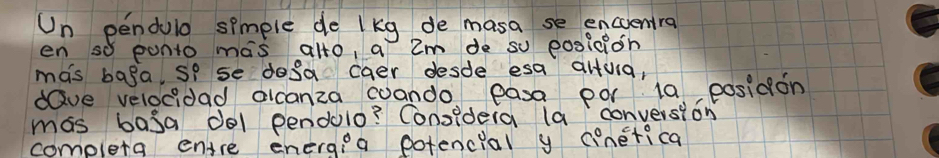 Un péndulo simple de 1kg de masa se encuentra
en su punto más alto, a 2m de su posición
más baja. Si se deja caer desde esa altura,
¿Que velocidad alcanza cuando pasa por la posición
mas baja del pendulo? Considera la conversión
completa entre energía potencial y cinética